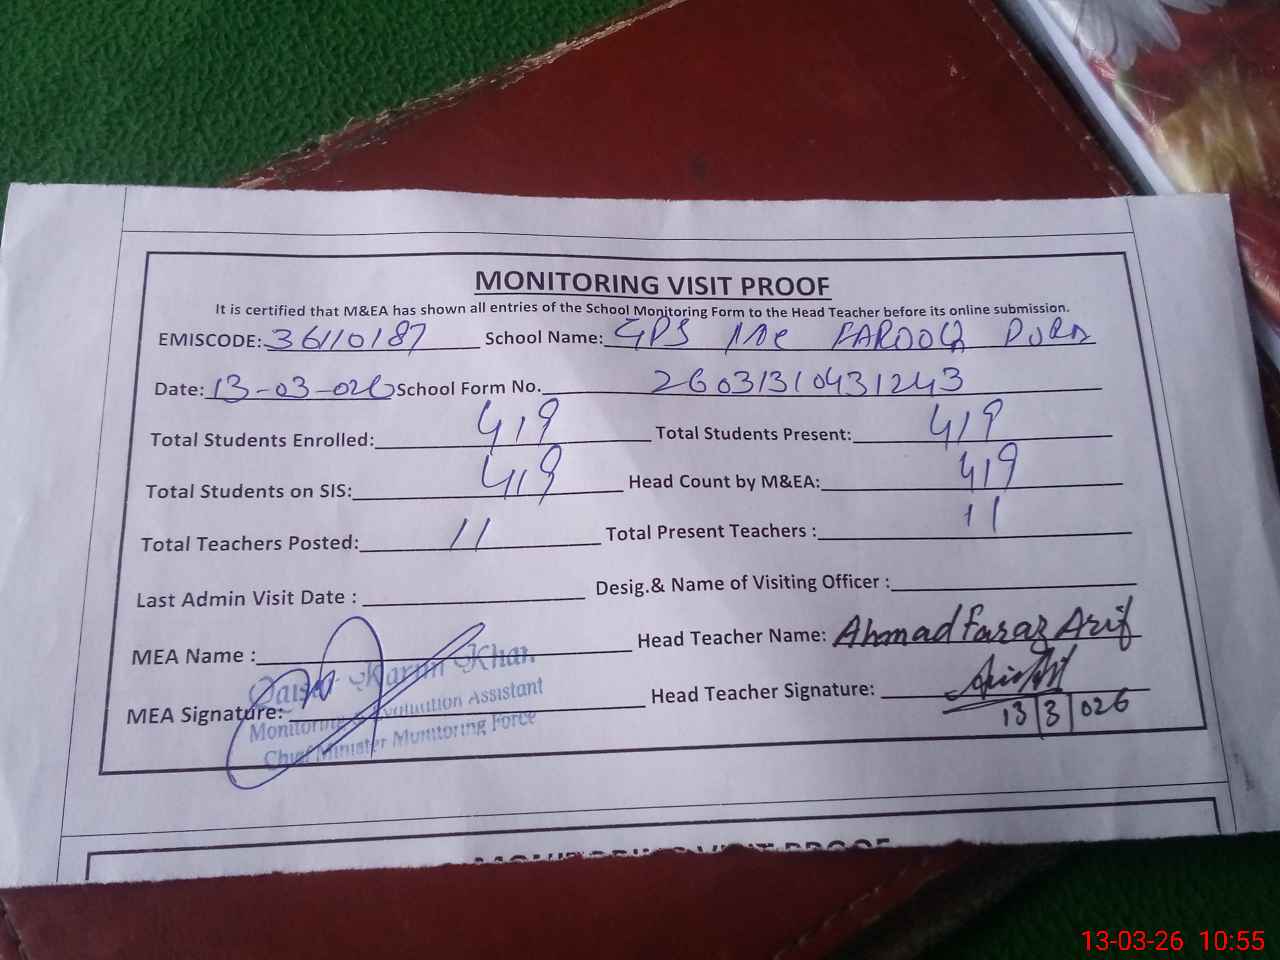 MONITORING VISIT PROOF
It is certified that M&EA has shown all entries of the School Monitoring Form to the Head Teacher before its online submission.
EMISCODE: 36110187 School Name: GPS FAROOQ PURA
Date: 13-03-026 School Form No. 26031310431243
Total Students Enrolled: 419 Total Students Present: 419
Total Students on SIS: 419 Head Count by M&EA: 419
Total Teachers Posted: 11 Total Present Teachers : 11
Last Admin Visit Date : Desig.& Name of Visiting Officer :
MEA Name : Head Teacher Name: Ahmad Faraz Arif
Karim Khan
MEA Signature: Head Teacher Signature:
Monitoring & Evaluation Assistant
13 3 026
Chief Minister Monitoring Force
MONITORING VISIT PROOF
13-03-26 10:55